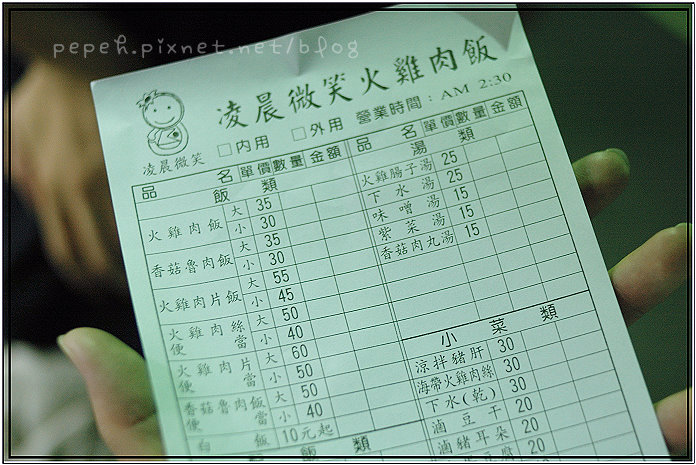 pepeh.pixnet.net/blog
凌晨微笑火雞肉飯
凌晨微笑
□內用 □外用 營業時間：AM 2:30
品名 單價 數量 金額
飯類
火雞肉飯 大 35
小 30
香菇魯肉飯 大 35
小 30
火雞肉片飯 大 55
小 45
火雞肉絲便當 大 50
小 40
火雞肉片便當 大 60
小 50
香菇魯肉飯便當 大 50
小 40
白飯 10元起
飯類
品名 單價 數量 金額
湯類
火雞腸子湯 25
下水湯 25
味噌湯 15
紫菜湯 15
香菇肉丸湯 15
小菜類
涼拌豬肝 30
海帶火雞肉絲 30
下水(乾) 30
滷豆干 20
滷豬耳朵 20
豆腐 20